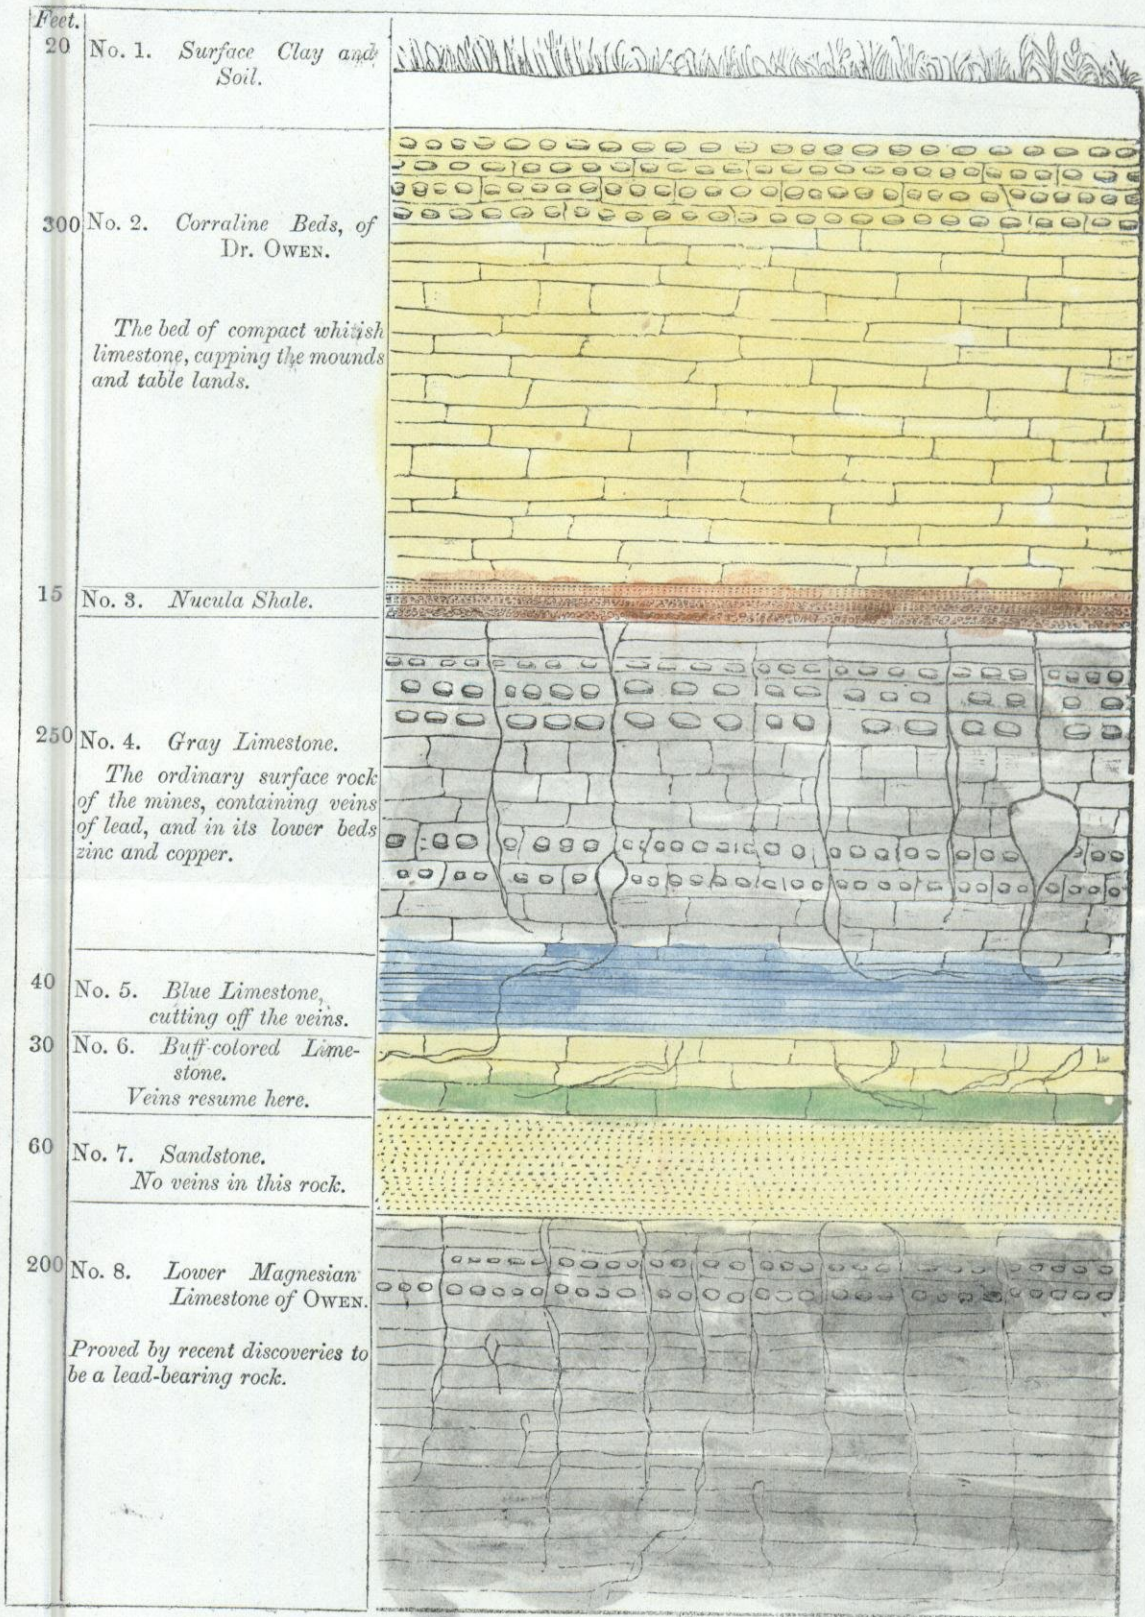 Feet.
20 No. 1. Surface Clay and
Soil.
300 No. 2. Corraline Beds, of
Dr. OWEN.
The bed of compact whitish
limestone, capping the mounds
and table lands.
15 No. 3. Nucula Shale.
250 No. 4. Gray Limestone.
The ordinary surface rock
of the mines, containing veins
of lead, and in its lower beds
zinc and copper.
40 No. 5. Blue Limestone,
cutting off the veins.
30 No. 6. Buff-colored Lime-
stone.
Veins resume here.
60 No. 7. Sandstone.
No veins in this rock.
200 No. 8. Lower Magnesian
Limestone of OWEN.
Proved by recent discoveries to
be a lead-bearing rock.